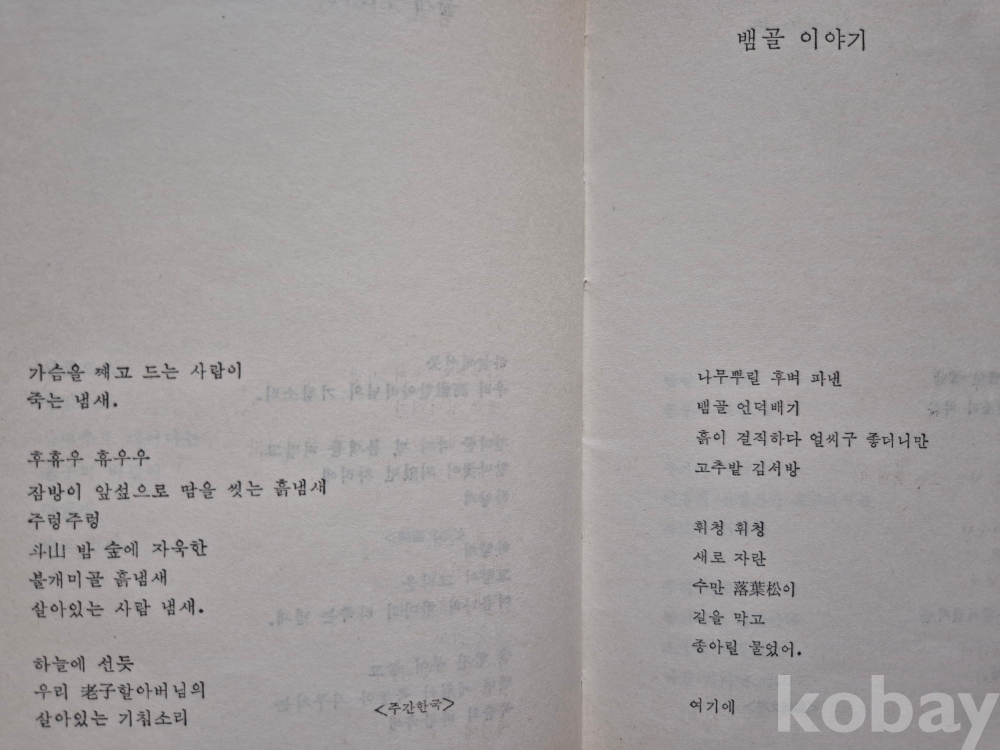 가슴을 깨고 드는 사람이
죽는 냄새.
후휴우 휴우우
잠방이 앞섶으로 땀을 씻는 흙냄새
주렁주렁
斗山 밤 숲에 자욱한
불개미골 흙냄새
살아있는 사람 냄새.
하늘에 선듯
우리 老子할아버님의
살아있는 기침소리
<주간한국>
뱀골 이야기
나무뿌릴 후벼 파낸
뱀골 언덕배기
흙이 걸직하다 얼씨구 좋더니만
고추밭 김서방
휘청 휘청
새로 자란
수만 落葉松이
길을 막고
종아릴 물었어.
여기에
kobay